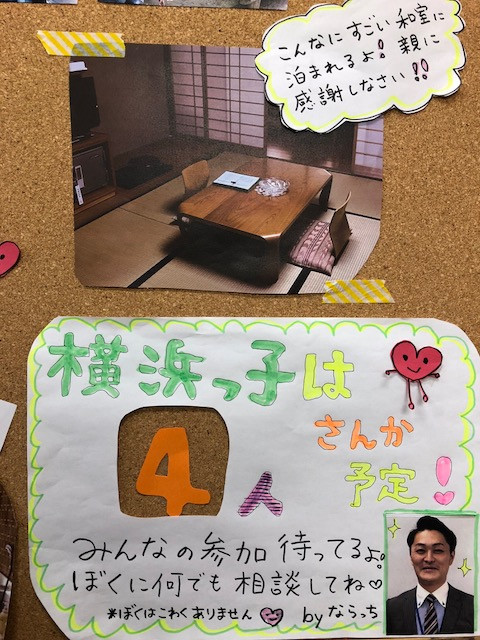 こんなにすごい和室に
泊まれるよ！親に
感謝しなさい!!
横浜っ子は
4人
さんか
予定！
みんなの参加待ってるよ！
ぼくに何でも相談してね♡
*ぼくはこわくありません♡ by ならっち